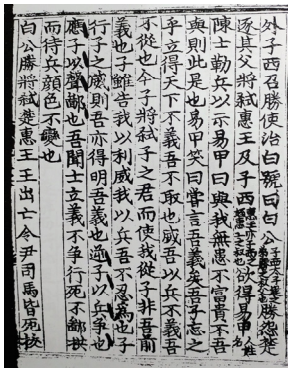 外子西召勝使治白號曰白公勝怨楚
逐其父將弒惠王及子西欲得易甲人姓名
陳士勒兵以示易甲曰與我無患不富貴不吾
與則此是也易甲笑曰嘗言吾義矣吾子忘之
乎立得天下不義吾不取也威吾以兵不義吾
不從也今子將弒子之君而使我從子非吾前
義也子雖告我以利威我以兵吾不忍為也子
行子之威則吾亦得明吾義也逆子以兵爭也
應子以聲鄙也吾聞士立義不爭行死不鄙拱
而待兵顏色不變也
白公勝將弒楚惠王王出亡令尹司馬皆死拔